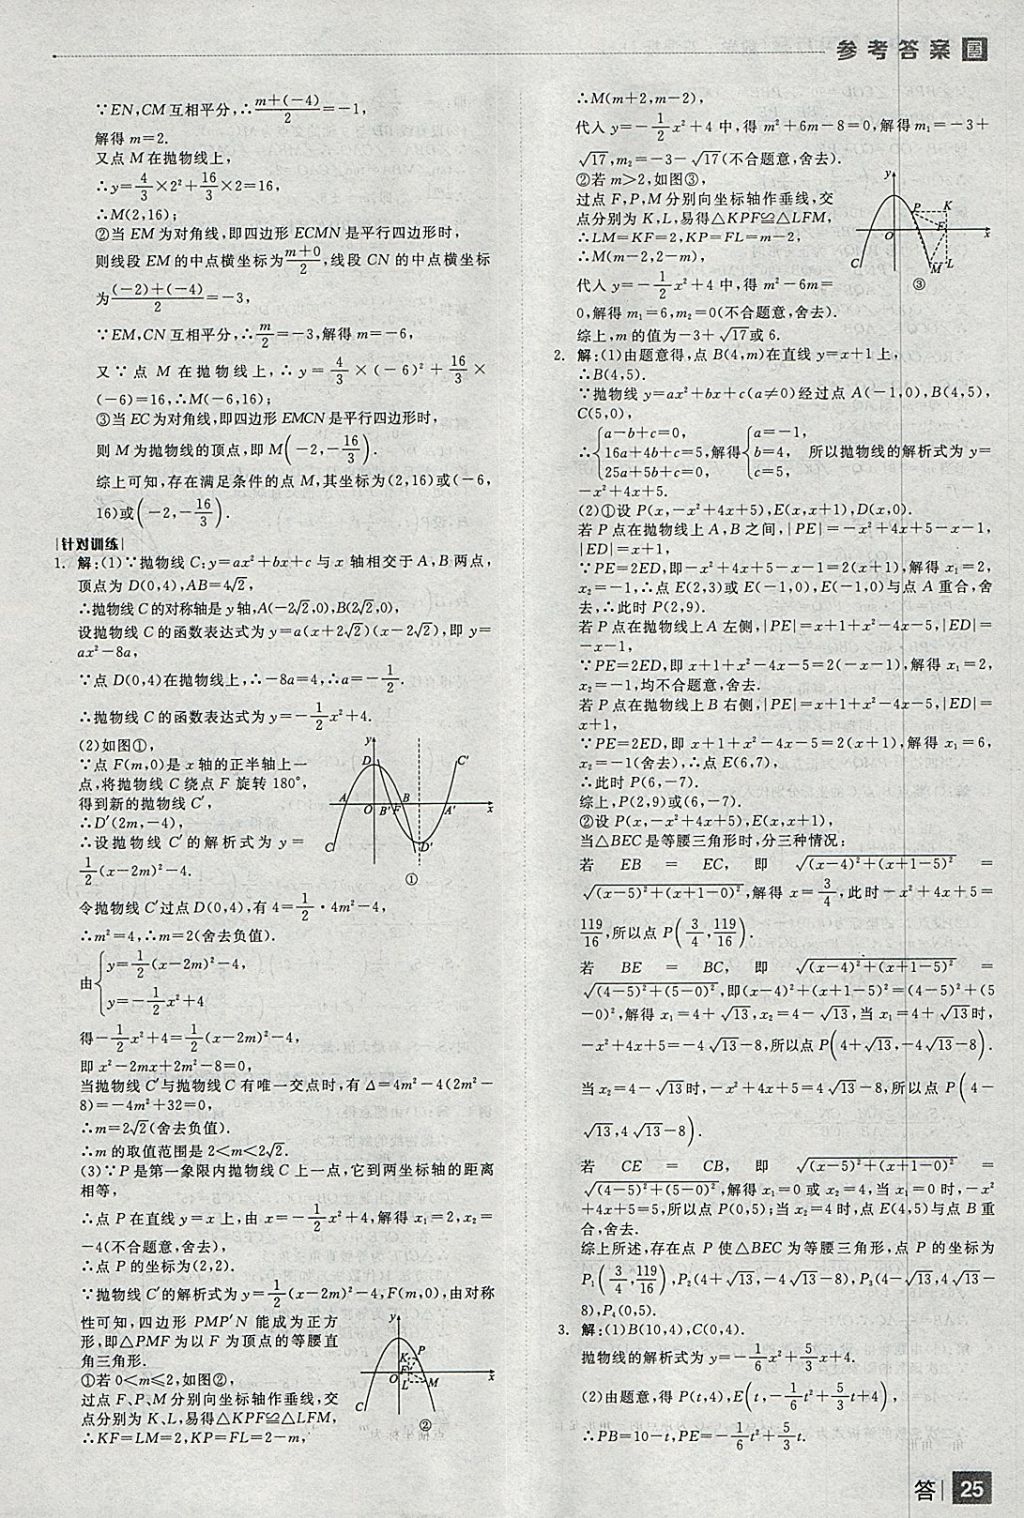 参考答案
∵EN,CM互相平分,∴\frac{m+(-4)}{2}=-1,
解得m=2.
又点M在抛物线上,
∴y=\frac{4}{3}×2²+\frac{16}{3}×2=16,
∴M(2,16);
②当EM为对角线,即四边形ECMN是平行四边形时,
则线段EM的中点横坐标为\frac{m+0}{2},线段CN的中点横坐标
为\frac{(-2)+(-4)}{2}=-3,
∵EM,CN互相平分,∴\frac{m}{2}=-3,解得m=-6,
又∵点M在抛物线上,∴y=\frac{4}{3}×(-6)²+\frac{16}{3}×
(-6)=16,∴M(-6,16);
③当EC为对角线,即四边形EMCN是平行四边形时,
则M为抛物线的顶点,即M(-2,-\frac{16}{3}).
综上可知,存在满足条件的点M,其坐标为(2,16)或(-6,
16)或(-2,-\frac{16}{3}).
|针对训练|
1. 解:(1)∵抛物线C:y=ax²+bx+c与x轴相交于A,B两点,
顶点为D(0,4),AB=4√2,
∴抛物线C的对称轴是y轴,A(-2√2,0),B(2√2,0),
设抛物线C的函数表达式为y=a(x+2√2)(x-2√2),即y=
ax²-8a,
∵点D(0,4)在抛物线上,∴-8a=4,∴a=-\frac{1}{2}.
∴抛物线C的函数表达式为y=-\frac{1}{2}x²+4.
(2)如图①,
∵点F(m,0)是x轴的正半轴上一
点,将抛物线C绕点F旋转180°,
得到新的抛物线C′,
∴D′(2m,-4),
∴设抛物线C′的解析式为y=
\frac{1}{2}(x-2m)²-4.
y D C′ A O B′ F B A′ x C D′
①
令抛物线C′过点D(0,4),有4=\frac{1}{2}·4m²-4,
∴m²=4,∴m=2(舍去负值).
由{y=\frac{1}{2}(x-2m)²-4,
y=-\frac{1}{2}x²+4
得-\frac{1}{2}x²+4=\frac{1}{2}(x-2m)²-4,
即x²-2mx+2m²-8=0,
当抛物线C′与抛物线C有唯一交点时,有Δ=4m²-4(2m²-
8)=-4m²+32=0,
∴m=2√2(舍去负值).
∴m的取值范围是2<m<2√2.
(3)∵P是第一象限内抛物线C上一点,它到两坐标轴的距离
相等,
∴点P在直线y=x上,由x=-\frac{1}{2}x²+4,解得x₁=2,x₂=
-4(不合题意,舍去),
∴点P的坐标为(2,2).
∵抛物线C′的解析式为y=\frac{1}{2}(x-2m)²-4,F(m,0),由对称
性可知,四边形PMP′N能成为正方
形,即△PMF为以F为顶点的等腰直
角三角形.
①若0<m≤2,如图②,
过点F,P,M分别向坐标轴作垂线,交
点分别为K、L,易得△KPF≌△LFM,
∴KF=LM=2,KP=FL=2-m,
y K P F O L M x C
②
∴M(m+2,m-2),
代入y=-\frac{1}{2}x²+4中,得m²+6m-8=0,解得m₁=-3+
√17,m₂=-3-√17(不合题意,舍去).
②若m>2,如图③,
过点F,P,M分别向坐标轴作垂线,交
点分别为K,L,易得△KPF≌△LFM,
∴LM=KF=2,KP=FL=m-2,
∴M(m-2,2-m),
代入y=-\frac{1}{2}x²+4中,得m²-6m=
0,解得m₁=6,m₂=0(不合题意,舍去).
综上,m的值为-3+√17或6.
y P K F O x C M L
③
2. 解:(1)由题意得,点B(4,m)在直线y=x+1上,
∴B(4,5).
∵抛物线y=ax²+bx+c(a≠0)经过点A(-1,0),B(4,5),
C(5,0),
∴{a-b+c=0, 16a+4b+c=5, 25a+5b+c=0,解得{a=-1, b=4, c=5, 所以抛物线的解析式为y=
-x²+4x+5.
(2)①设P(x,-x²+4x+5),E(x,x+1),D(x,0).
若P点在抛物线上A,B之间,|PE|=-x²+4x+5-x-1,
|ED|=x+1,
∵PE=2ED,即-x²+4x+5-x-1=2(x+1),解得x₁=2,
x₂=-1,∴点E(2,3)或E(-1,0),E(-1,0)与点A重合,舍
去,∴此时P(2,9).
若P点在抛物线上A左侧,|PE|=x+1+x²-4x-5,|ED|=
-x-1,
∵PE=2ED,即x+1+x²-4x-5=2(-x-1),解得x₁=2,
x₂=-1,均不合题意,舍去.
若P点在抛物线上B右侧,|PE|=x+1+x²-4x-5,|ED|=
x+1,
∵PE=2ED,即x+1+x²-4x-5=2(x+1),解得x₁=6,
x₂=-1(舍去),∴点E(6,7),
∴此时P(6,-7).
综上,P(2,9)或(6,-7).
②设P(x,-x²+4x+5),E(x,x+1),
当△BEC是等腰三角形时,分三种情况:
若EB=EC,即√((x-4)²+(x+1-5)²)=
√((x-5)²+(x+1-0)²),解得x=\frac{3}{4},此时-x²+4x+5=
\frac{119}{16},所以点P(\frac{3}{4},\frac{119}{16}).
若BE=BC,即√((x-4)²+(x+1-5)²)=
√((4-5)²+(5-0)²),即(x-4)²+(x+1-5)²=(4-5)²+(5
-0)²,解得x₁=4+√13,x₂=4-√13,当x₁=4+√13时,
-x²+4x+5=-4√13-8,所以点P(4+√13,-4√13-8).
当x₂=4-√13时,-x²+4x+5=4√13-8,所以点P(4-
√13,4√13-8).
若CE=CB,即√((x-5)²+(x+1-0)²)=
√((4-5)²+(5-0)²),解得x₁=0或x₂=4,当x₁=0时,-x²
+4x+5=5,所以点P(0,5);当x₂=4时,点E(4,5)与点B重
合,舍去.
综上所述,存在点P使△BEC为等腰三角形,点P的坐标为
P₁(\frac{3}{4},\frac{119}{16}),P₂(4+√13,-4√13-8),P₃(4-√13,4√13-
8),P₄(0,5).
3. 解:(1)B(10,4),C(0,4).
抛物线的解析式为y=-\frac{1}{6}x²+\frac{5}{3}x+4.
(2)由题意,得P(t,4),E(t,-\frac{1}{6}t²+\frac{5}{3}t+4),
∴PB=10-t,PE=-\frac{1}{6}t²+\frac{5}{3}t.
答 25